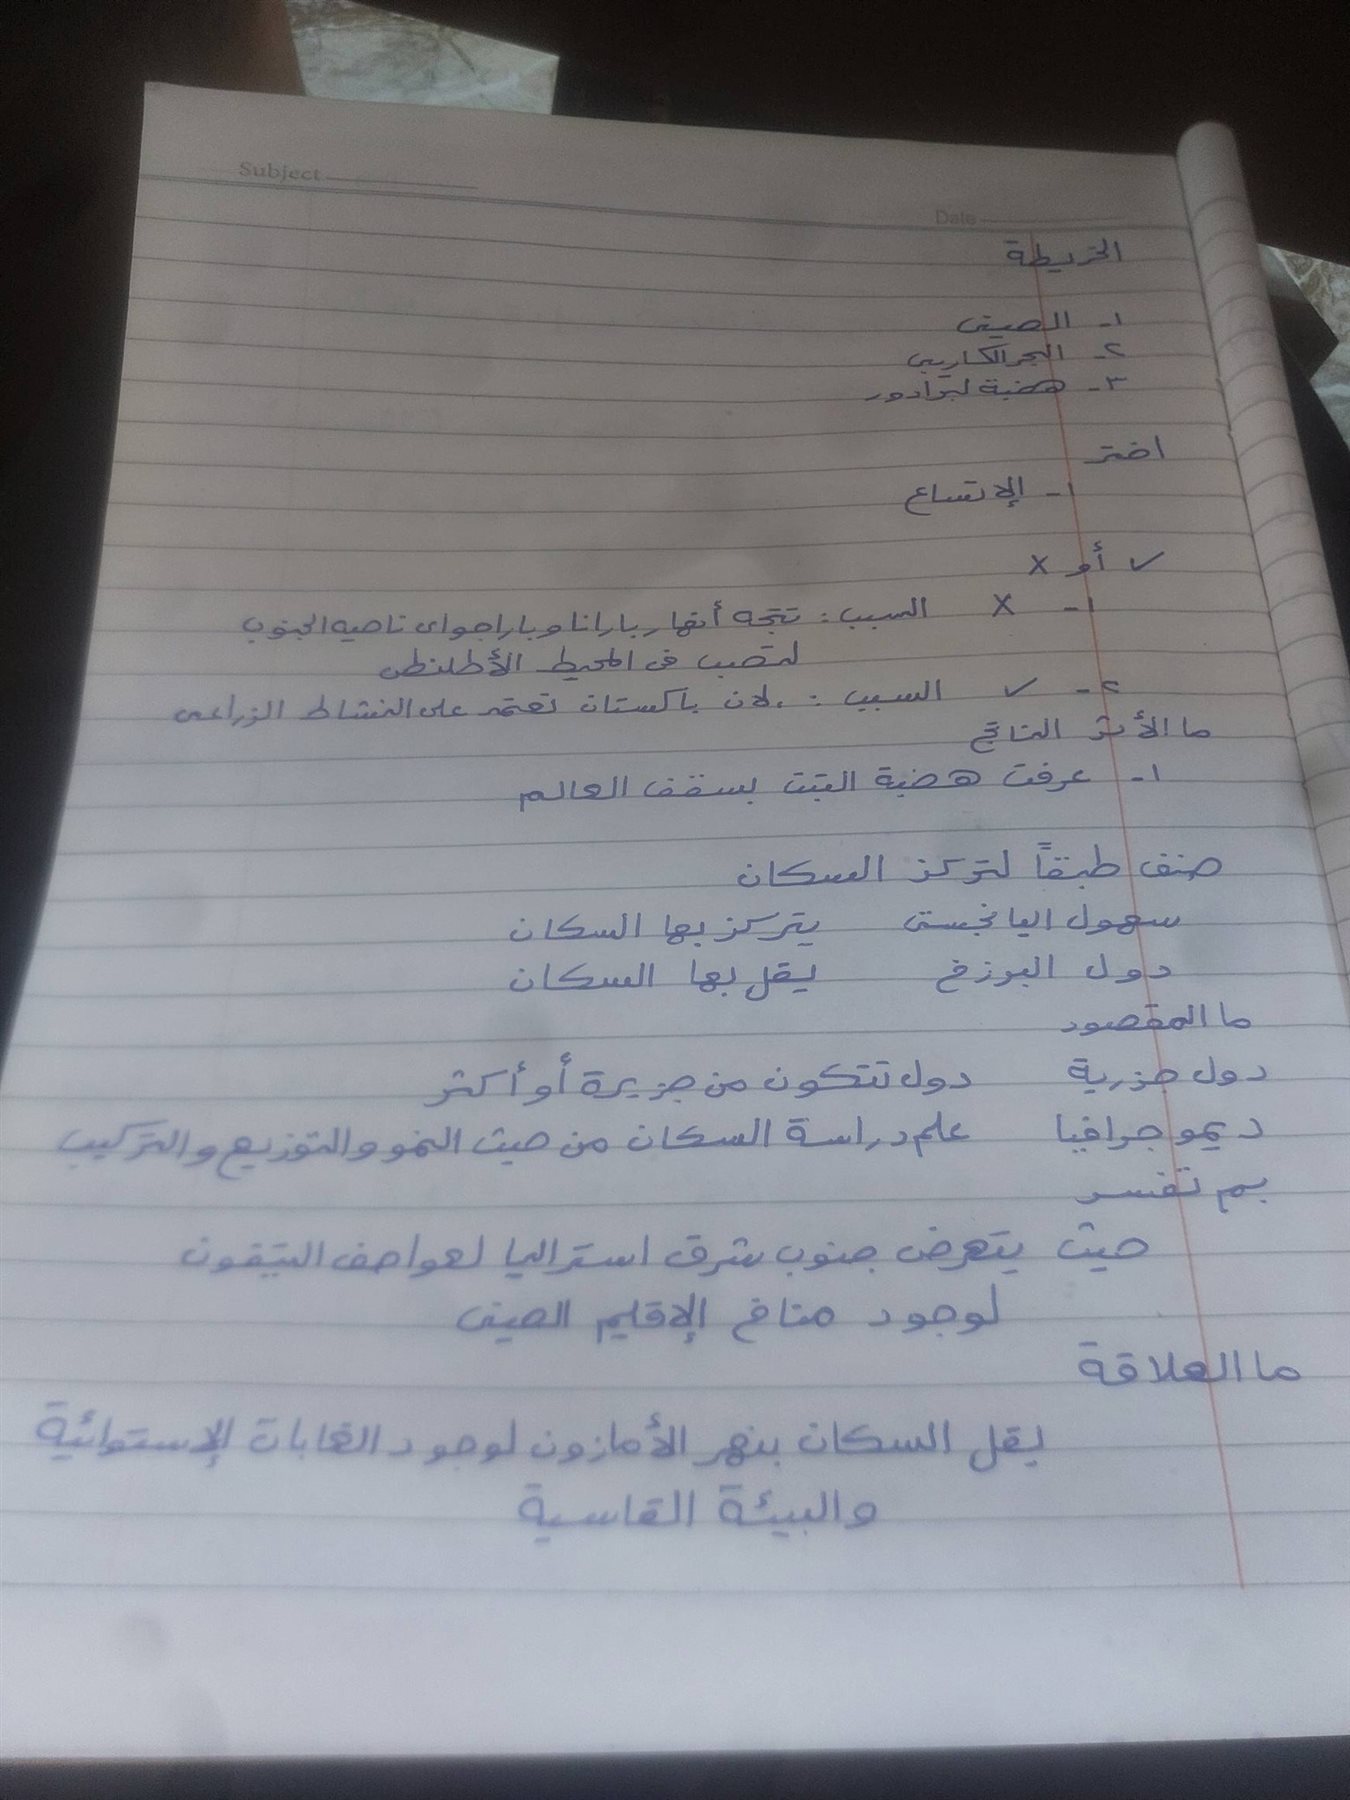 Subject
Date
الخريطة
١- الصينى
٢- البحر الكاريبى
٣- هضبة لبرادور
اختر
١- الإتساع
✓ أو X
١- X السبب: تتجه أنهار بارانا وباراجواى ناحيه الجنوب
لتصب فى المحيط الأطلنطى
٢- ✓ السبب: لان باكستان تعتمد على النشاط الزراعى
ما الأثر الناتج
١- عرفت هضبة التبت بسقف العالم
صنف طبقاً لتركز السكان
سهول اليانجستى يتركز بها السكان
دول البرزخ يقل بها السكان
ما المقصود
دول جزرية دول تتكون من جزيرة أو أكثر
ديموجرافيا علم دراسة السكان من حيث النمو والتوزيع والتركيب
بم تفسر
حيث يتعرض جنوب شرق استراليا لعواصف التيفون
لوجود مناخ الإقليم الصينى
ما العلاقة
يقل السكان بنهر الأمازون لوجود الغابات الإستوائية
والبيئة القاسية